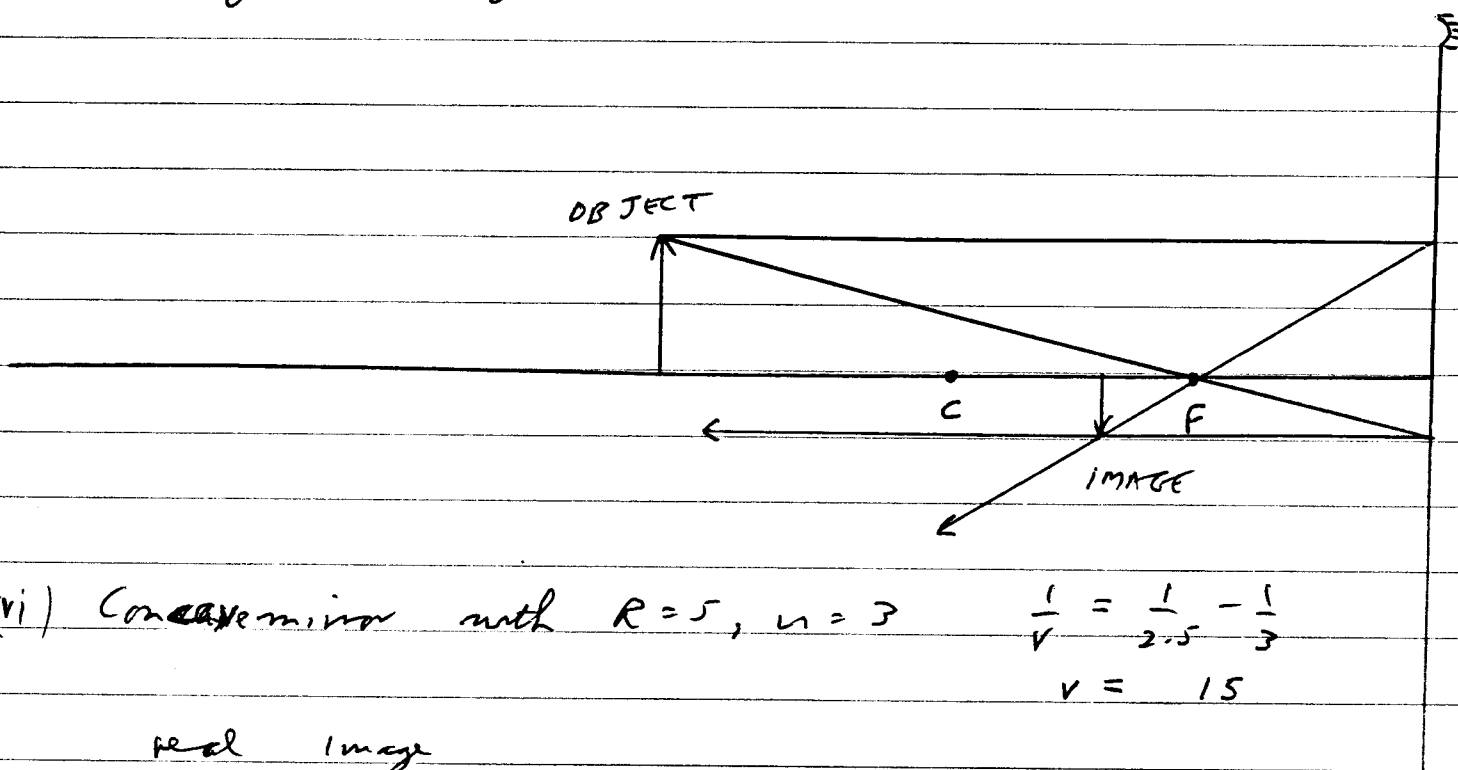 OBJECT
C
F
IMAGE
vi) Concave mirror with R = 5, u = 3 1/v = 1/2.5 - 1/3
v = 15
real image